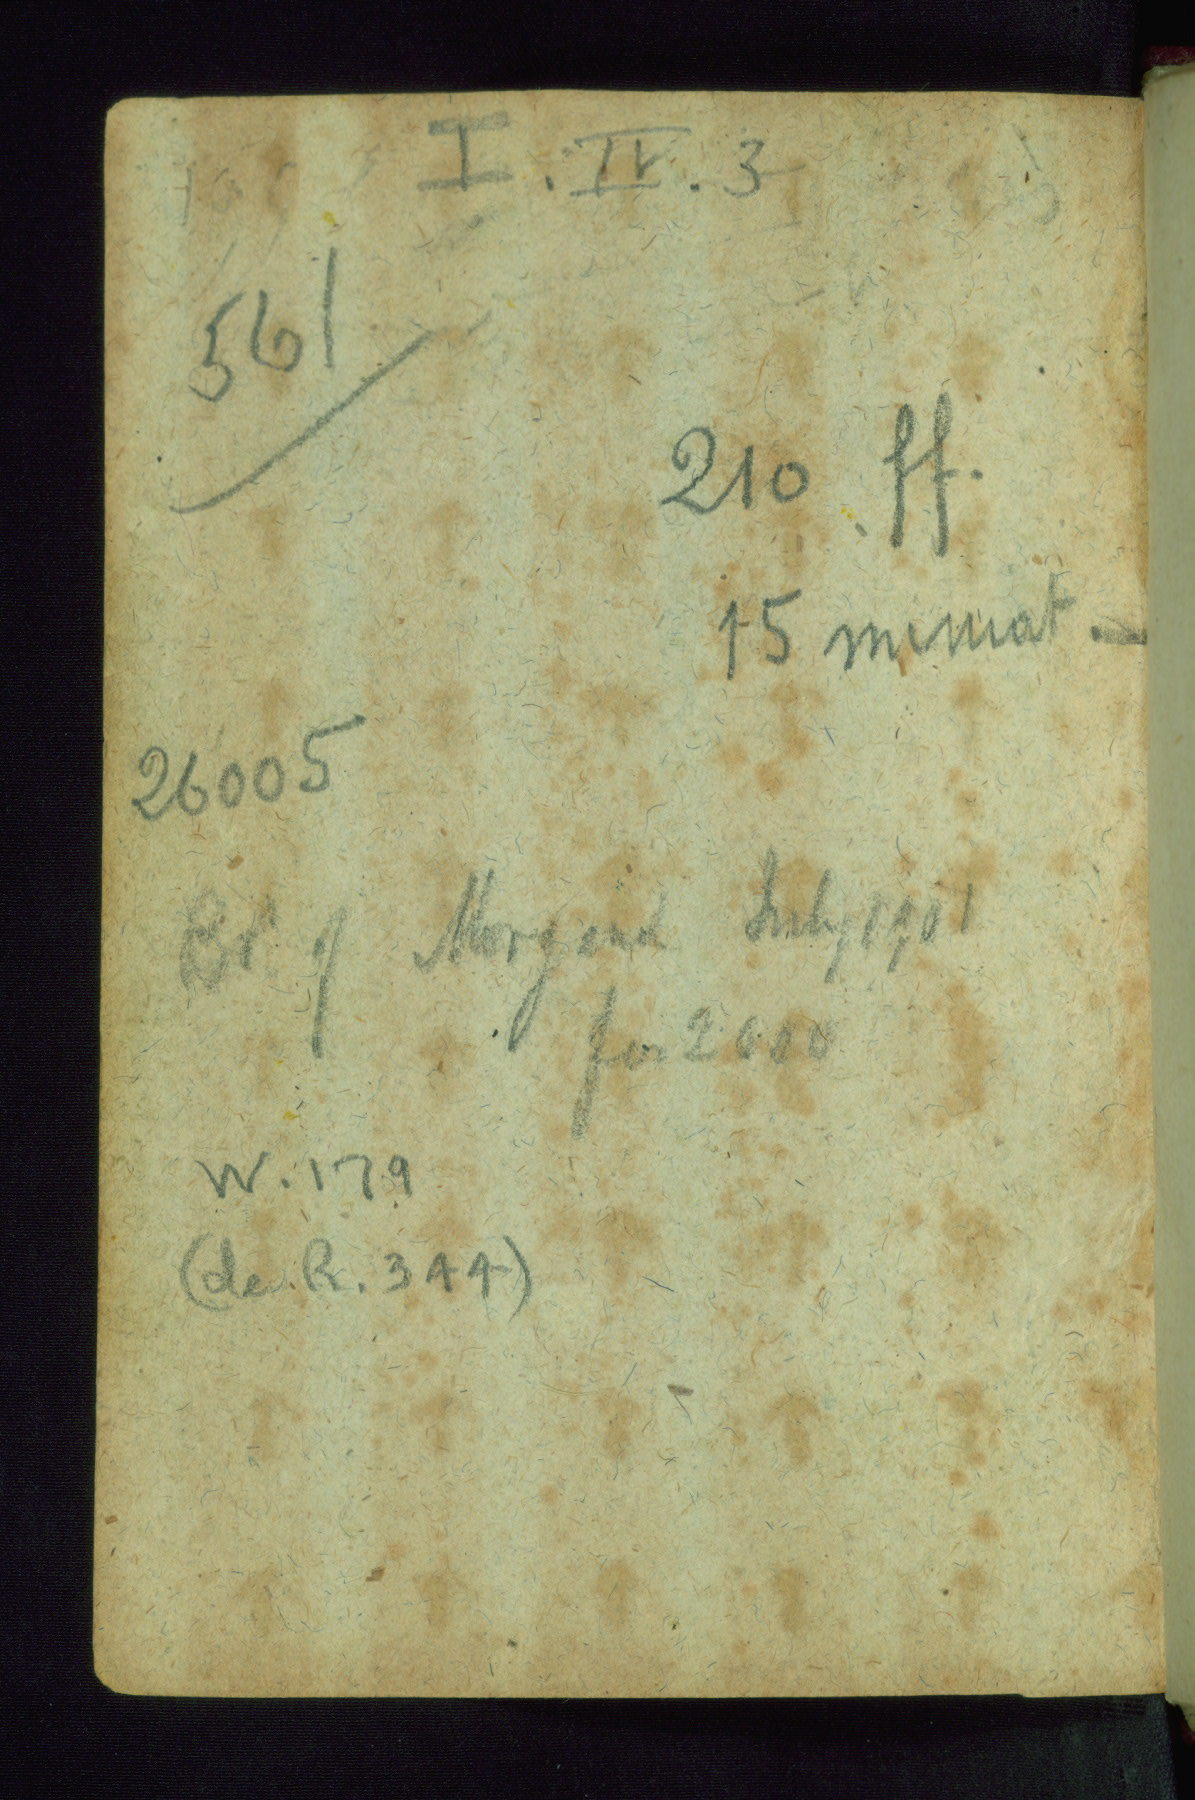 I.IV.3
561
210 ff.
15 miniat -
26005
Bt of Morgand July 1901
for 2000
W.179
(de R. 344)